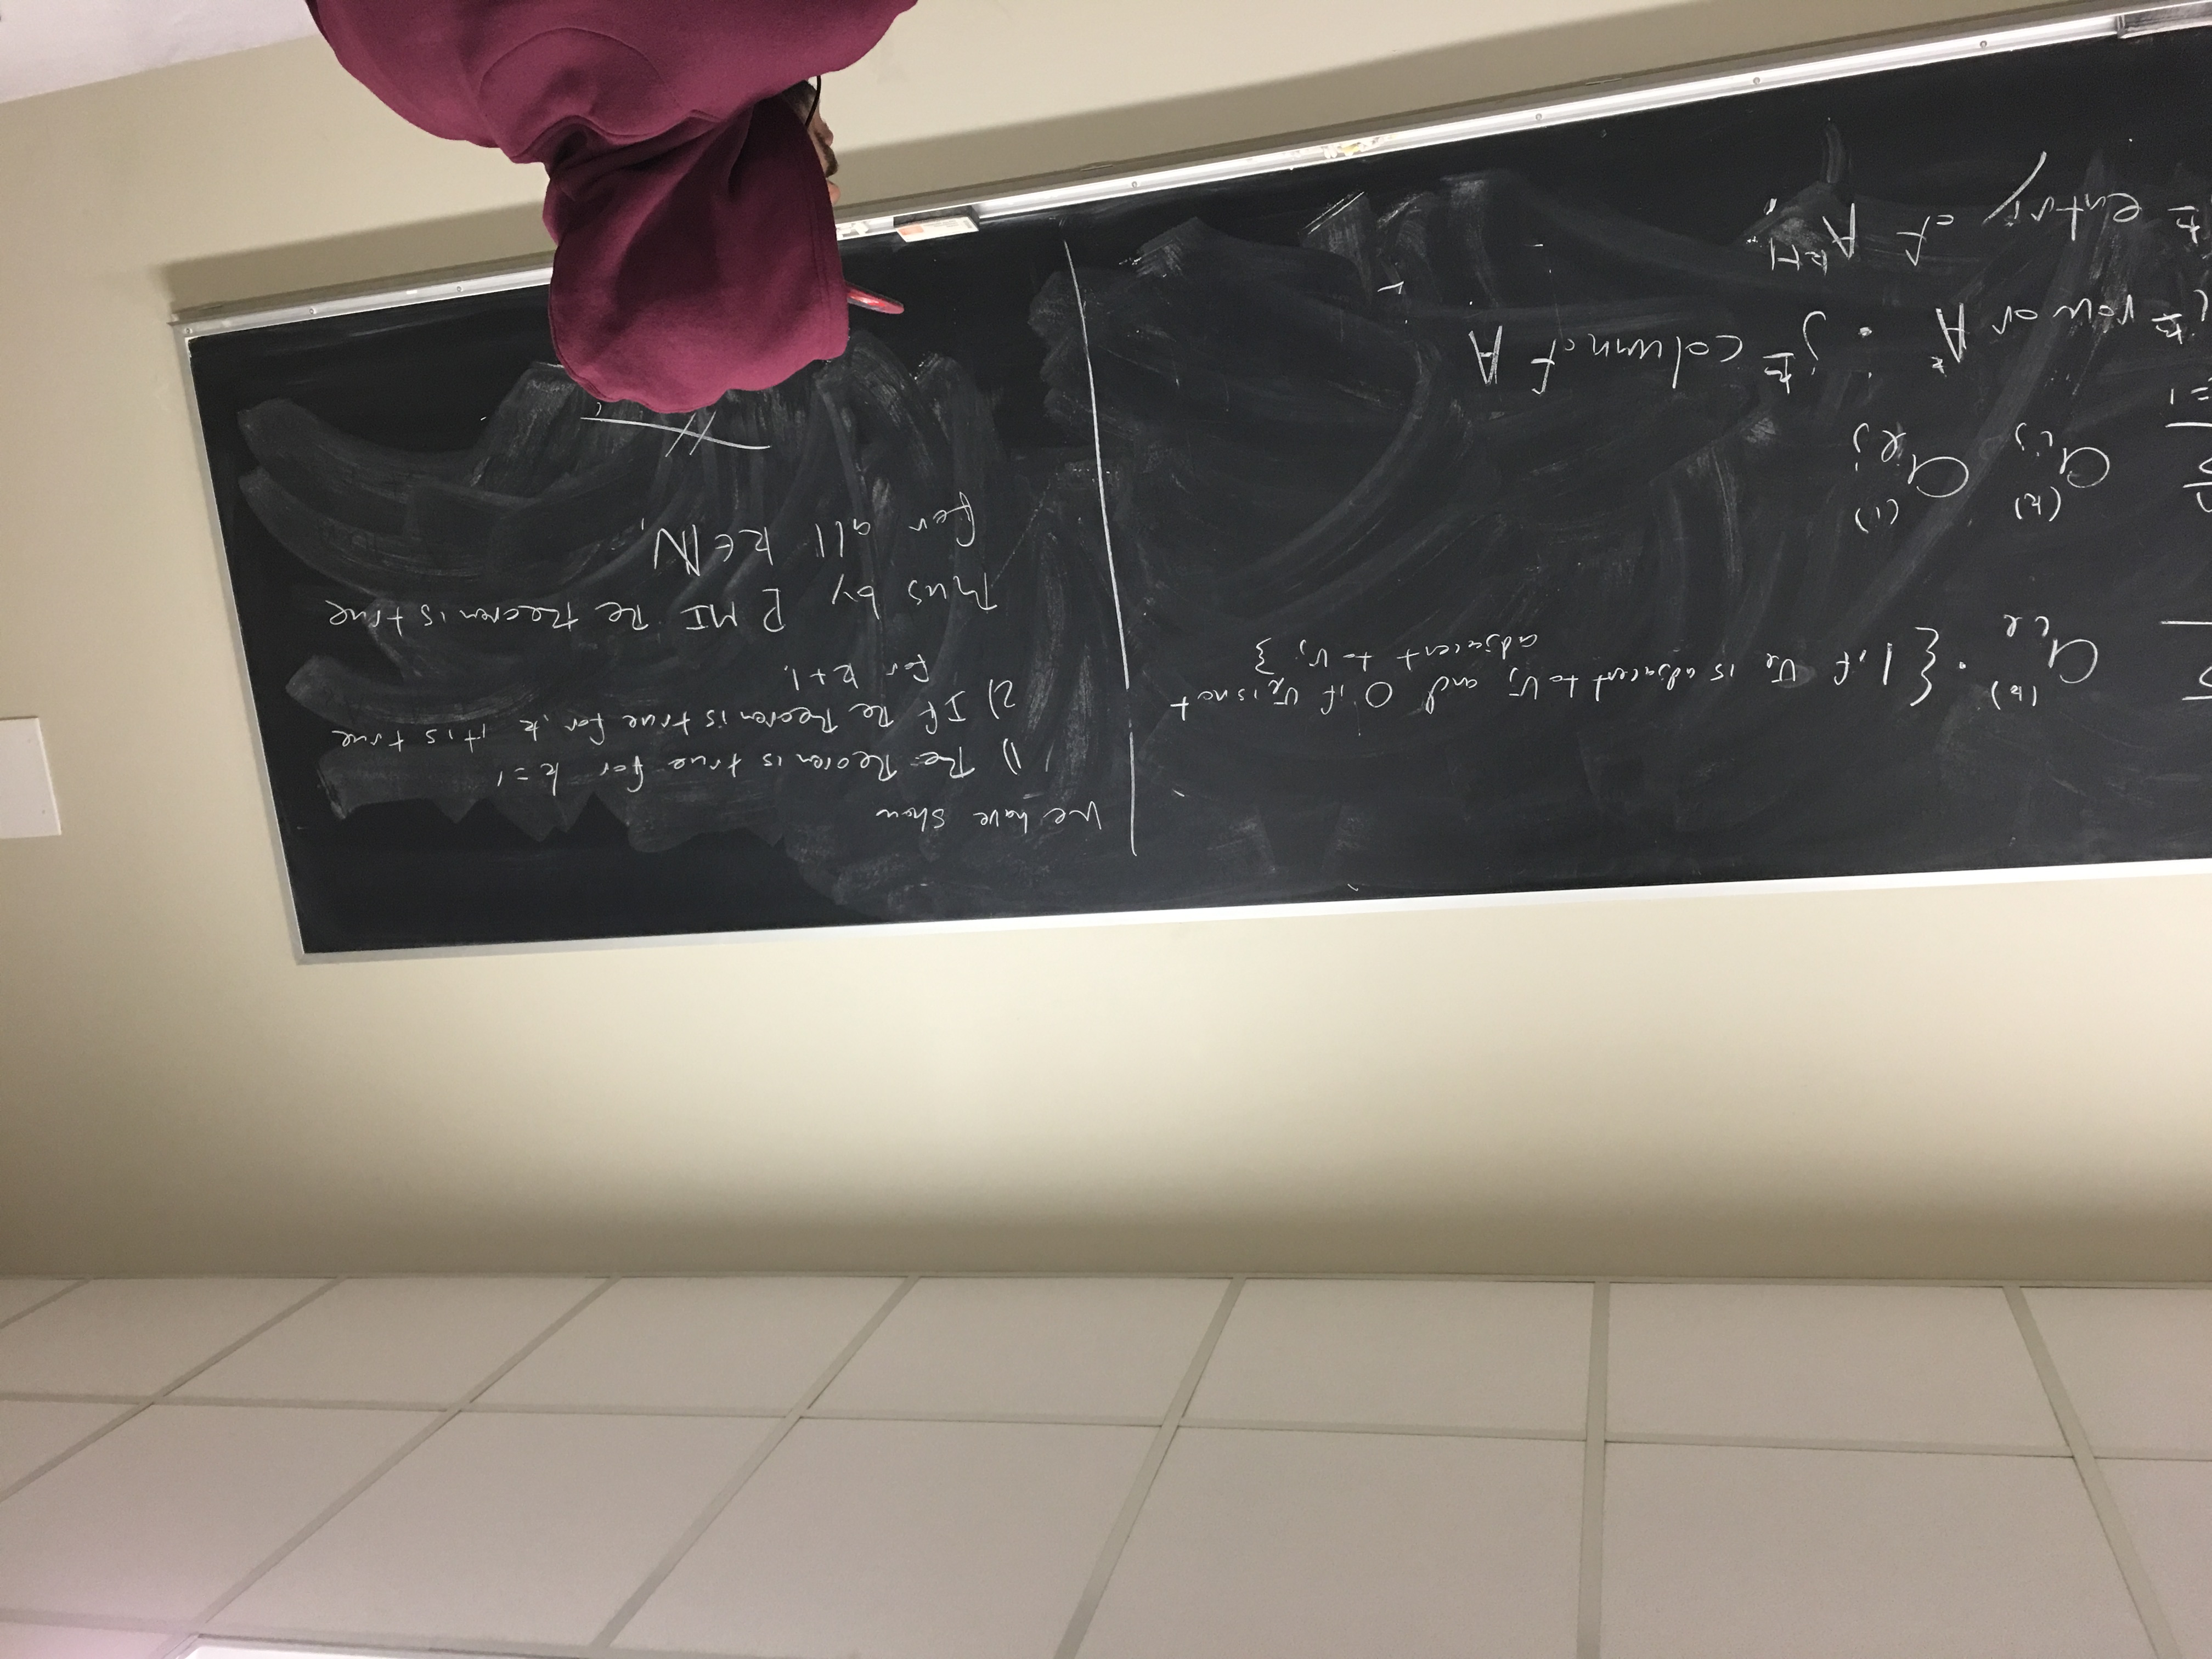 Σ a_{il}^{(k)} · { 1 if v_l is adjacent to v_j and 0 if v_l is not
adjacent to v_j }
n
Σ a_{ij}^{(k)} a_{lj}^{(1)}
=1
i^{th} row or A^k · j^{th} column of A
th entry of A^{k+1}.
We have show
1) The theorem is true for k=1
2) If the theorem is true for k it is true
for k+1.
Thus by PMI the theorem is true
for all k∈ℕ.